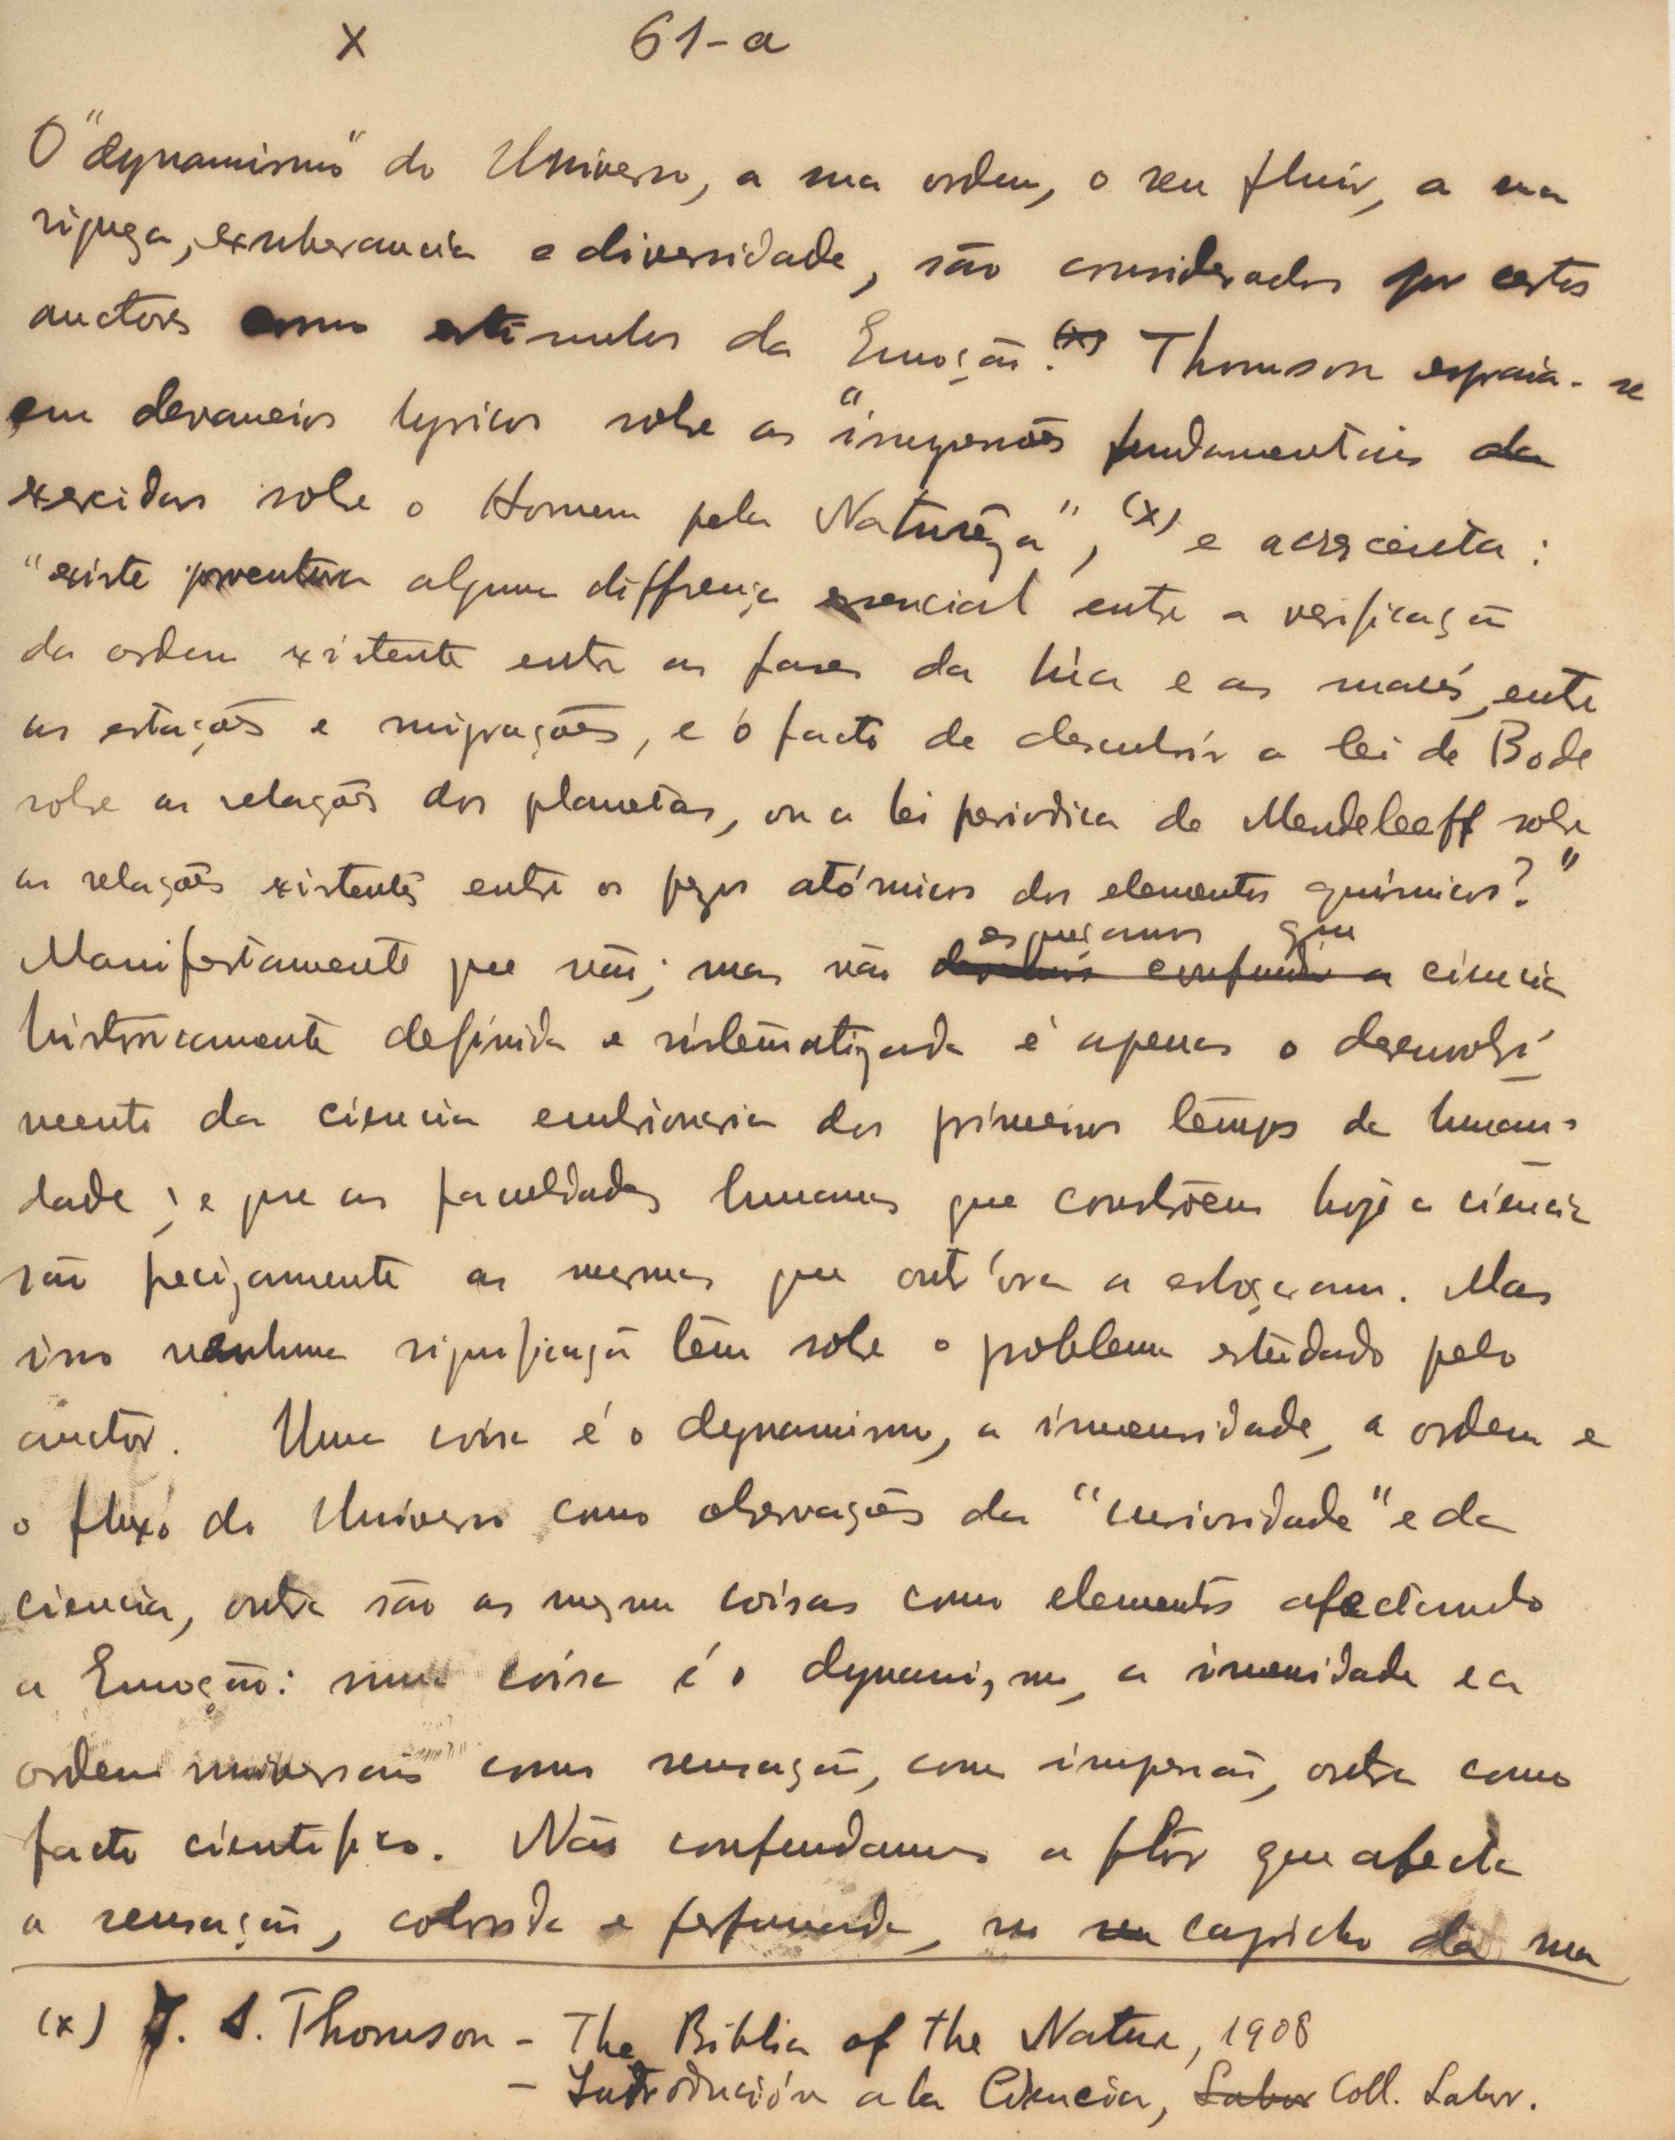 X 61-a
O "dynamismo" do Universo, a sua ordem, o seu fluir, a sua
riqueza, exuberancia e diversidade, são considerados por certos
auctores como estimulos da Emoção. (x) Thomson espraia-se
em devaneios lyricos sobre as "impressões fundamentais da
exercidas sobre o Homem pela Naturêza", (x) e acrescenta:
"existe porventura alguma diffrença essencial entre a verificação
da ordem existente entre as fases da lúa e as marés, entre
as estações e migrações, e o facto de descubrir a lei de Bode
sobre as relações dos planetas, ou a lei periodica de Mendeleeff sobre
as relações existentes entre os pezos atómicos dos elementos químicos?"
Manifestamente que não; mas não esqueçamos que ciencia
historicamente definida e sistematizada é apenas o desenvolvi
mento da ciencia embrionaria dos primeiros tempos da humani
dade; e que as faculdades humanas que constroem hoje a ciência
são precizamente as mesmas que outr'ora a esboçaram. Mas
isso nenhuma significação têm sobre o problema estudado pelo
auctor. Uma coisa é o dynamismo, a imensidade, a ordem e
o fluxo do Universo como observações da "curiosidade" e da
ciencia, outra são as mesmas coisas como elementos afectando
a Emoção: uma coisa é o dynamismo, a imensidade e a
ordem universais como sensação, como impressão, outra como
facto cientifico. Não confundamos a flôr que afecta
a sensação, colorida e perfumada, no seu capricho da sua
(x) J. A. Thomson - The Biblia of the Natur, 1908
- Introdución a la Ciencia, Labor Coll. Labor.